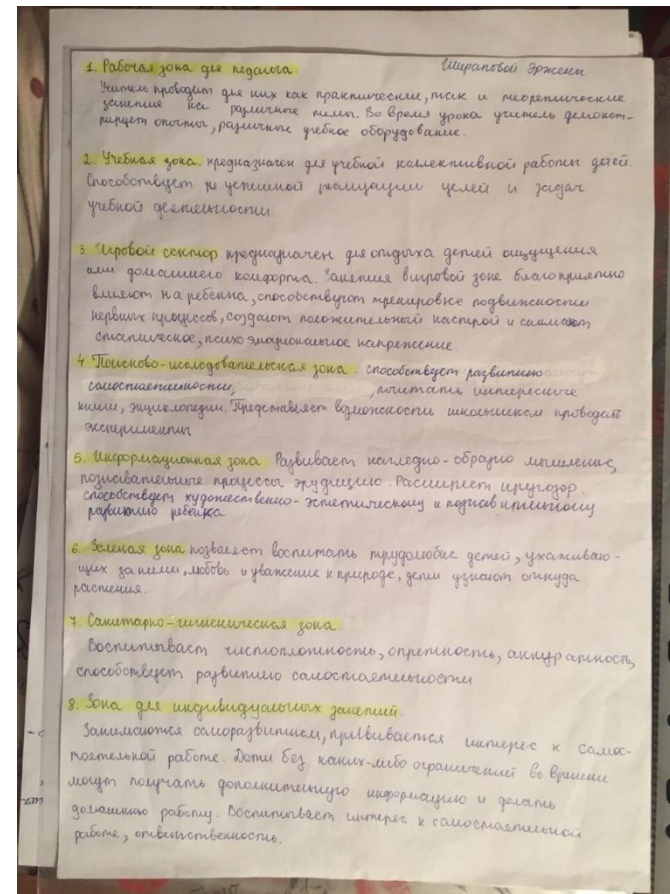 Шираповой Эржены
1. Рабочая зона для педагога.
Учитель проводит для них как практические, так и теоретические
занятия на различные темы. Во время урока учитель демонст-
рирует опыты, различные учебное оборудование.
2. Учебная зона. предназначен для учебной коллективной работы детей.
Способствует успешной реализации целей и задач
учебной деятельности
3. Игровой сектор предназначен для отдыха детей ощущения
или домашнего комфорта. Занятия в игровой зоне благоприятно
влияют на ребенка, способствуют тренировке подвижности
нервных процессов, создают положительный настрой и снимают
статическое, психо эмоциональное напряжение.
4. Поисково-исследовательская зона. способствует развитию
самостоятельности, , почитать интересные
книги, энциклопедии. Представляет возможности школьникам проводить
эксперименты
5. Информационная зона Развивает наглядно-образно мышление,
познавательные процессы эрудицию. Расширяет кругозор.
способствует художественно-эстетическому и познавательному
развитию ребенка
6. Зеленая зона позволяет воспитать трудолюбие детей, ухаживаю-
щих за ними, любовь и уважение к природе, дети узнают откуда
растения.
7. Санитарно-гигиеническая зона
Воспитывает чистоплотность, опрятность, аккуратность,
способствует развитию самостоятельности
8. Зона для индивидуальных занятий.
Занимаются саморазвитием, прививается интерес к самос-
тоятельной работе. Дети без каких-либо ограничений во времени
могут получать дополнительную информацию и делать
домашнюю работу. Воспитывает интерес к самостоятельной
работе, ответственность.